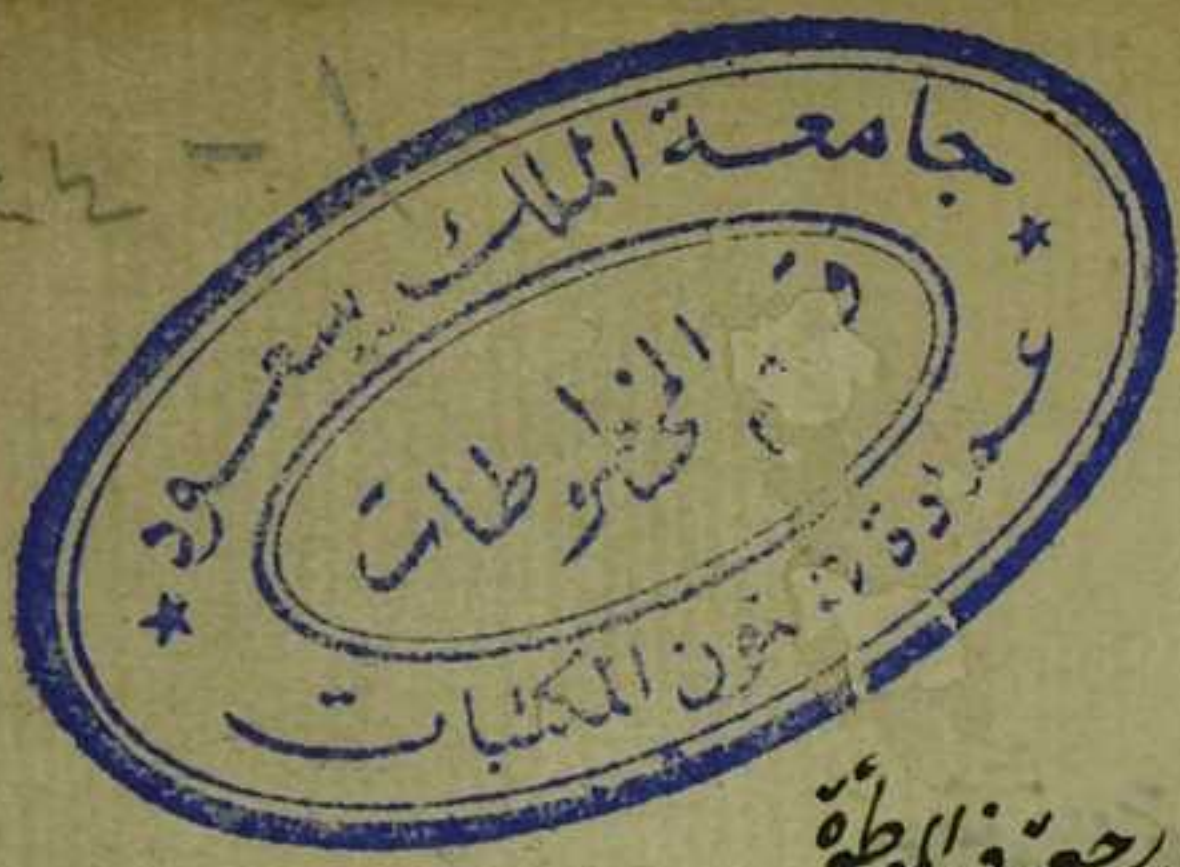 جامعة الملك سعود
قسم المخطوطات
عمادة شؤون المكتبات